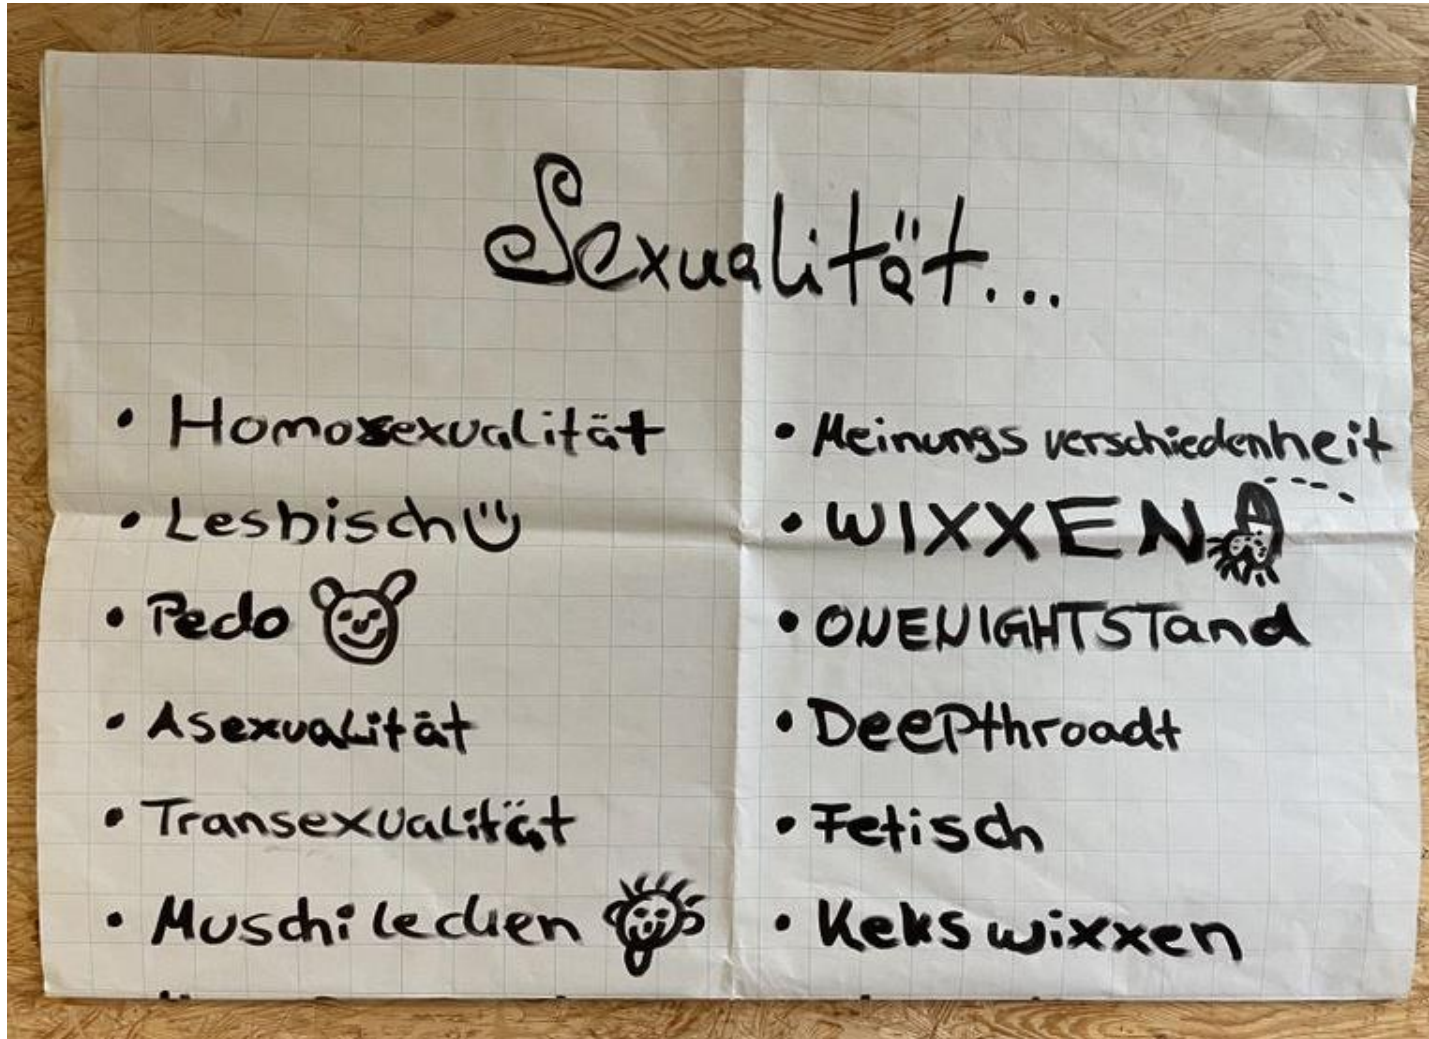 Sexualität...
• Homosexualität
• Lesbisch
• Pedo
• Asexualität
• Transexualität
• Muschi lecken
• Meinungs verschiedenheit
• WIXXEN
• ONENIGHTSTand
• DeePthroadt
• Fetisch
• Keks wixxen